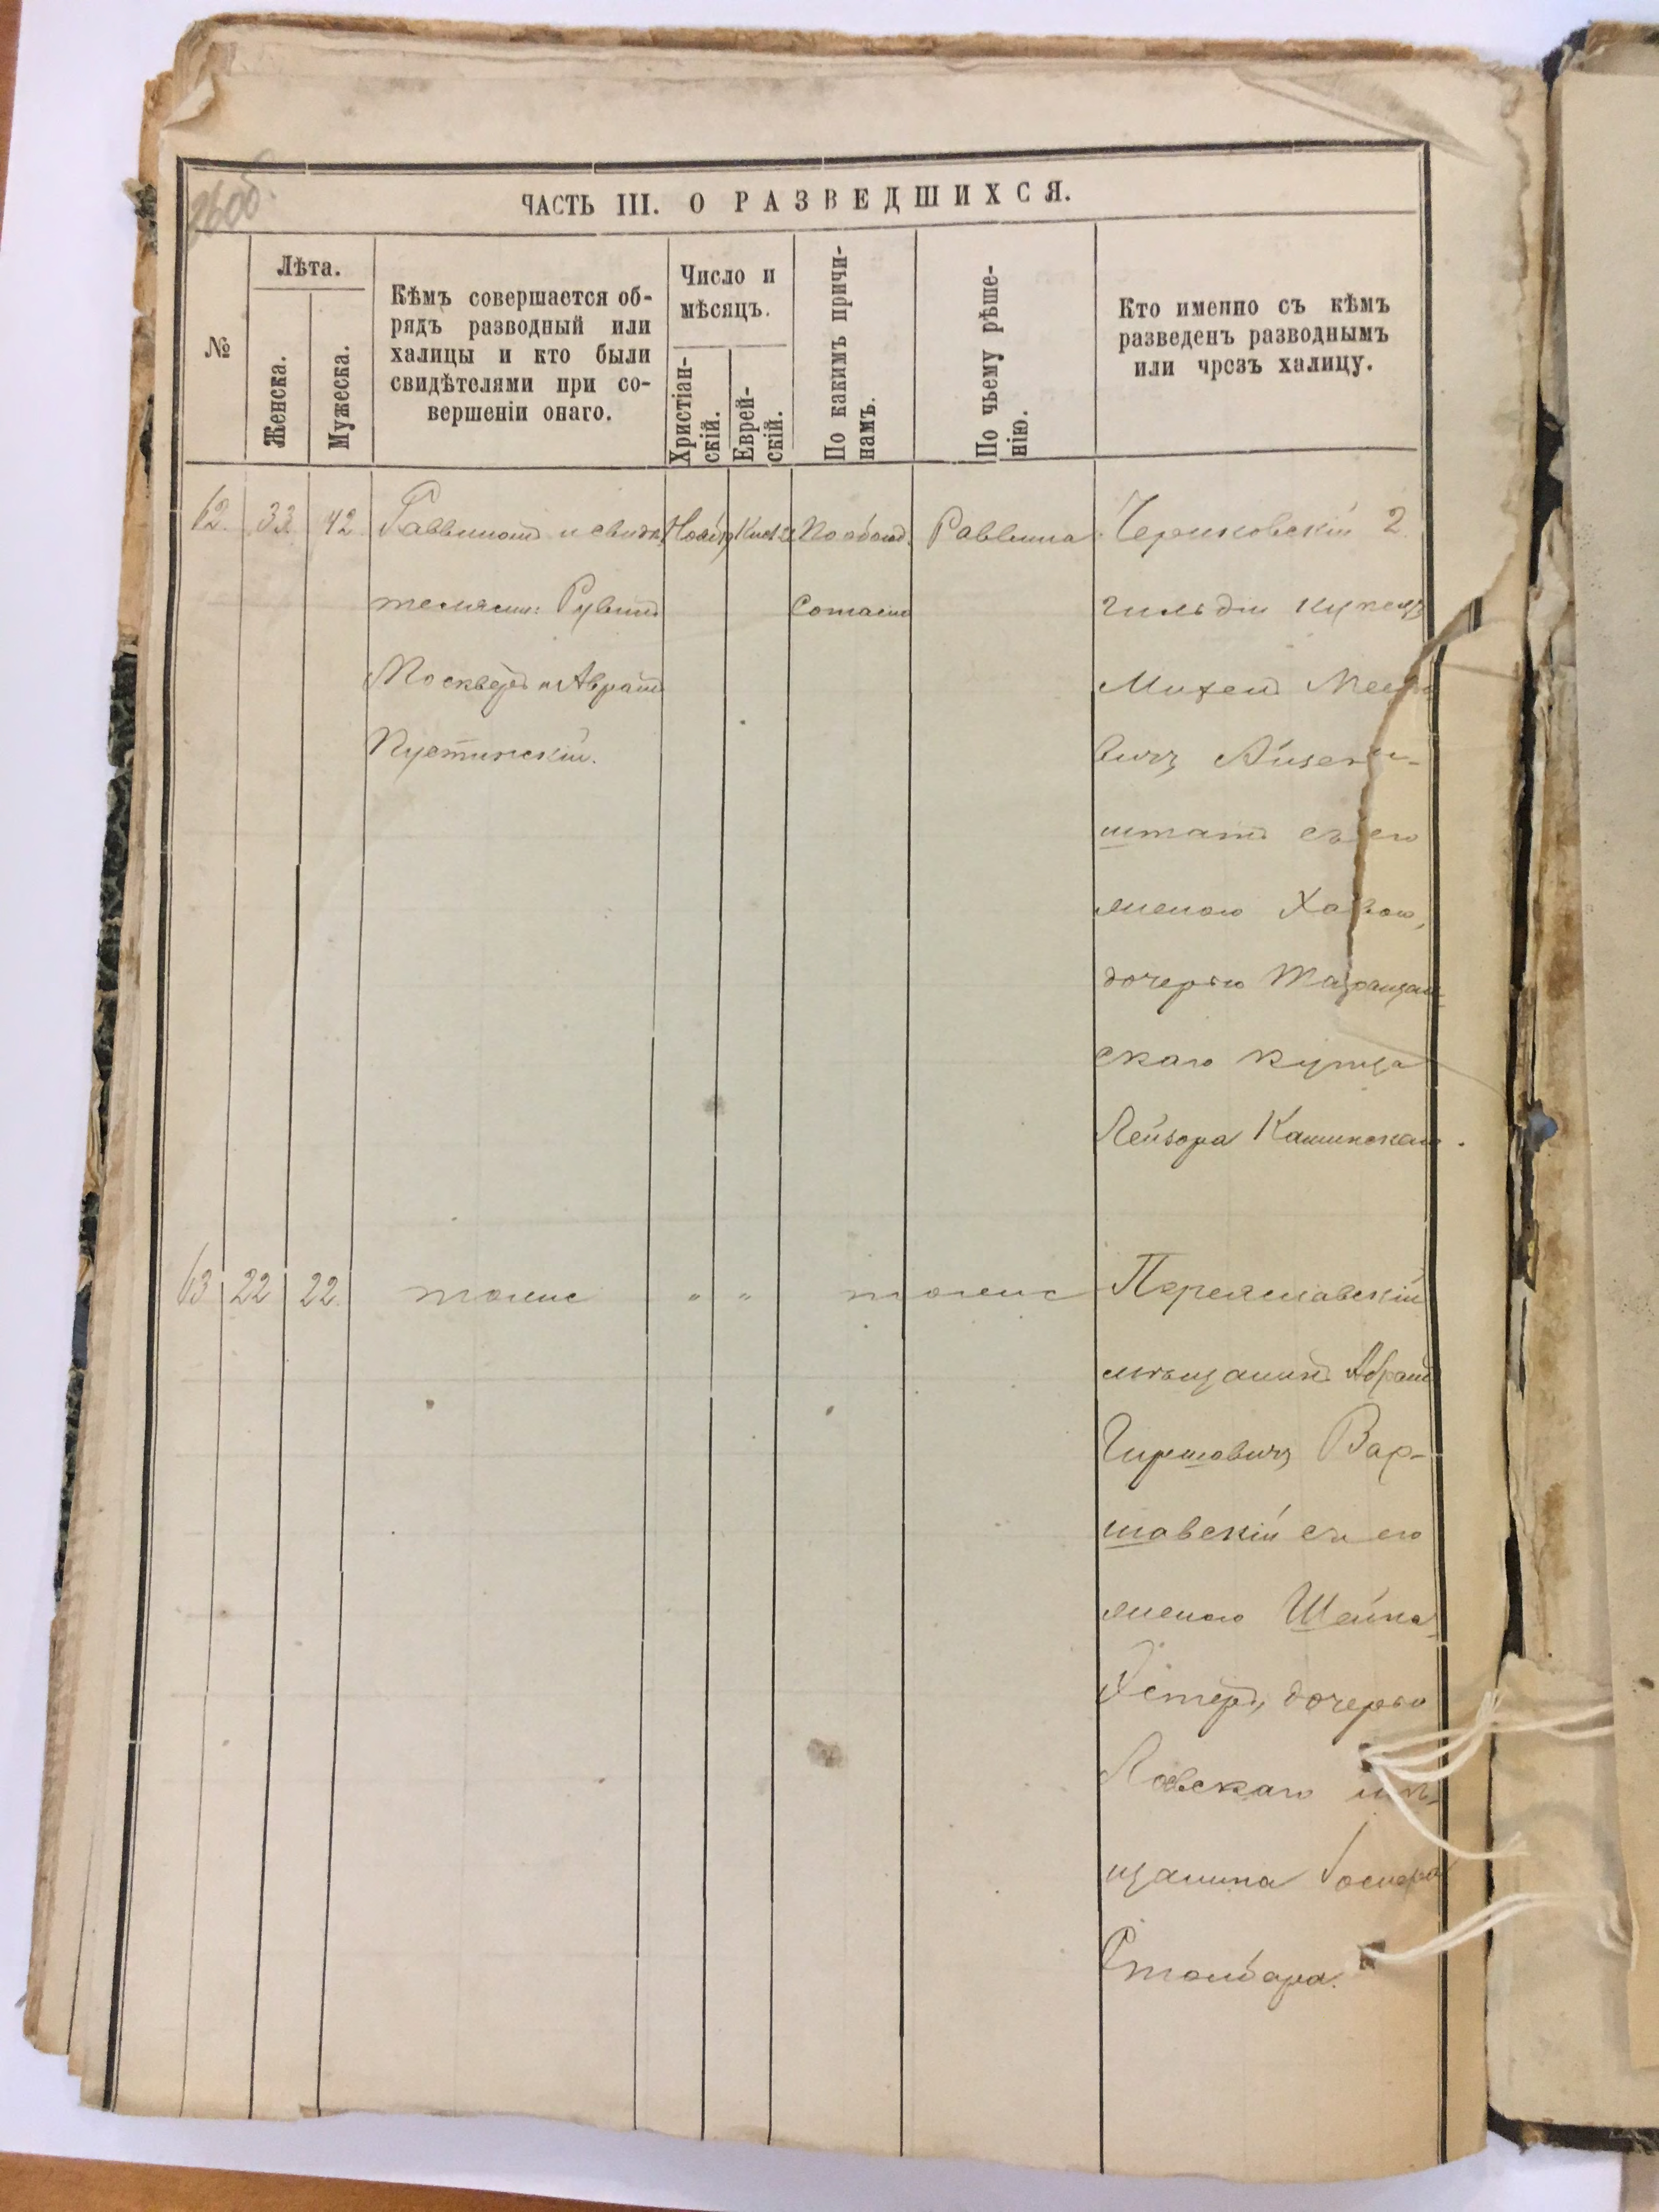 26об.
ЧАСТЬ III. О РАЗВЕДШИХСЯ.
№
Лѣта.
Женска.
Мужеска.
Кѣмъ совершается об-
рядъ разводный или
халицы и кто были
свидѣтелями при со-
вершеніи онаго.
Число и
мѣсяцъ.
Христіан-
скій.
Еврей-
скій.
По какимъ причи-
намъ.
По чьему рѣше-
нію.
Кто именно съ кѣмъ
разведенъ разводнымъ
или чрезъ халицу.
62. 33. 42
Раввиномъ и свидѣ-
телями: Рувинъ
Москве и Аврамъ
Пустинскій.
По обоюд.
Согласію
Раввина
Чериковскій 2
гильдіи купецъ
Михель Мее
вичъ Айзен-
штатъ съ его
женою Хавою,
дочерью Таращан-
скаго купца
Лейзора Каминскаго.
63 22 22.
тоже
" "
тоже
Переяславскій
мѣщанинъ Абрамъ
Гиршовичъ Вар-
шавскій съ его
женою Шейна-
Эстеръ, дочерью
скаго мѣ-
щанина
Столбара.